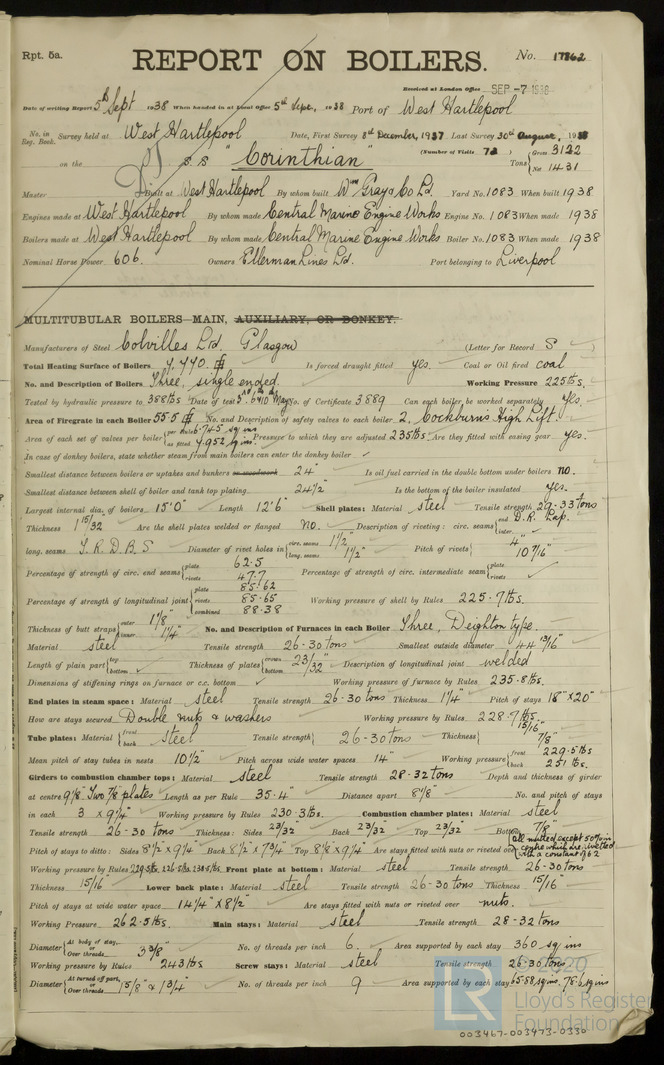 Rpt. 5a.
REPORT ON BOILERS.
No. 17862
Received at London Office SEP -7 1938
Date of writing Report 5th Sept 1938 When handed in at Local Office 5th Sept. 1938 Port of West Hartlepool
No. in Reg. Book. Survey held at West Hartlepool Date, First Survey 8th December, 1937 Last Survey 30th August, 1938
on the S.S "Corinthian" (Number of Visits 72) Tons { Gross 3122 Net 1431
Master Built at West Hartlepool By whom built Wm Gray & Co Ld. Yard No. 1083 When built 1938
Engines made at West Hartlepool By whom made Central Marine Engine Works Engine No. 1083 When made 1938
Boilers made at West Hartlepool By whom made Central Marine Engine Works Boiler No. 1083 When made 1938
Nominal Horse Power 606. Owners Ellerman Lines Ld. Port belonging to Liverpool
MULTITUBULAR BOILERS MAIN, AUXILIARY, OR DONKEY.
Manufacturers of Steel Colvilles Ltd, Glasgow (Letter for Record S)
Total Heating Surface of Boilers 9,770 Is forced draught fitted yes. Coal or Oil fired coal
No. and Description of Boilers Three, single ended. Working Pressure 225 lbs.
Tested by hydraulic pressure to 388 lbs. Date of test No. of Certificate 3889 Can each boiler be worked separately Yes.
Area of Firegrate in each Boiler 55.5 No. and Description of safety valves to each boiler 2, Cockburn's High Lift.
Area of each set of valves per boiler { per Rule 6.745 sq ins as fitted 7.952 sq ins. Pressure to which they are adjusted 235 lbs. Are they fitted with easing gear yes.
In case of donkey boilers, state whether steam from main boilers can enter the donkey boiler
Smallest distance between boilers or uptakes and bunkers or woodwork 24" Is oil fuel carried in the double bottom under boilers no.
Smallest distance between shell of boiler and tank top plating. 24½" Is the bottom of the boiler insulated yes.
Largest internal dia. of boilers 15'0" Length 12'6" Shell plates: Material steel Tensile strength 29-33 tons
Thickness 1 15/32 Are the shell plates welded or flanged no. Description of riveting: circ. seams { end D.R. Lap. inter.
long. seams T.R.D.B.S Diameter of rivet holes in { circ. seams 1½" long. seams 1½" Pitch of rivets { 4" 10 7/16"
Percentage of strength of circ. end seams { plate 62.5 rivets 47.7 Percentage of strength of circ. intermediate seam { plate rivets
Percentage of strength of longitudinal joint { plate 85.62 rivets 85.65 combined 88.38 Working pressure of shell by Rules 225.7 lbs.
Thickness of butt straps { outer 1 1/8" inner 1¼" No. and Description of Furnaces in each Boiler Three, Deighton type.
Material steel Tensile strength 26-30 tons Smallest outside diameter 44 13/16"
Length of plain part { top bottom Thickness of plates { crown bottom 23/32" Description of longitudinal joint welded
Dimensions of stiffening rings on furnace or c.c. bottom Working pressure of furnace by Rules 235.8 lbs.
End plates in steam space: Material steel Tensile strength 26-30 tons Thickness 1¼" Pitch of stays 18"x20"
How are stays secured Double nuts & washers Working pressure by Rules 228.7 lbs.
Tube plates: Material { front back steel Tensile strength { 26-30 tons Thickness { 15/16" 7/8"
Mean pitch of stay tubes in nests 10½" Pitch across wide water spaces 14" Working pressure { front 229.5 lbs back 251 lbs.
Girders to combustion chamber tops: Material steel Tensile strength 28-32 tons Depth and thickness of girder
at centre 9 1/8" Two 7/8" plates Length as per Rule 35.4" Distance apart 8 1/8" No. and pitch of stays
in each 3 x 9¼" Working pressure by Rules 230.3 lbs. Combustion chamber plates: Material steel
Tensile strength 26-30 tons Thickness: Sides 23/32" Back 23/32" Top 23/32" Bottom 7/8"
Pitch of stays to ditto: Sides 8½"x9¼" Back 8½"x7¾" Top 8 1/8"x9¼" Are stays fitted with nuts or riveted over
Working pressure by Rules Front plate at bottom: Material steel Tensile strength 26-30 tons
Thickness 15/16" Lower back plate: Material steel Tensile strength 26-30 tons Thickness 15/16"
Pitch of stays at wide water space 14¼"x8½" Are stays fitted with nuts or riveted over nuts.
Working Pressure 262.5 lbs. Main stays: Material steel Tensile strength 28-32 tons
Diameter { At body of stay, or Over threads 3 3/8" No. of threads per inch 6. Area supported by each stay 360 sq ins
Working pressure by Rules 243 lbs Screw stays: Material steel Tensile strength 26-30 tons
Diameter { At turned off part, or Over threads 1 5/8" & 1¾" No. of threads per inch 9 Area supported by each stay 65.88 sq ins. 78.6 sq ins
© 2020
LR
Lloyd's Register
Foundation
003467-003473-0330